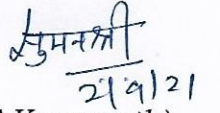 सुमनश्री
21/9/21